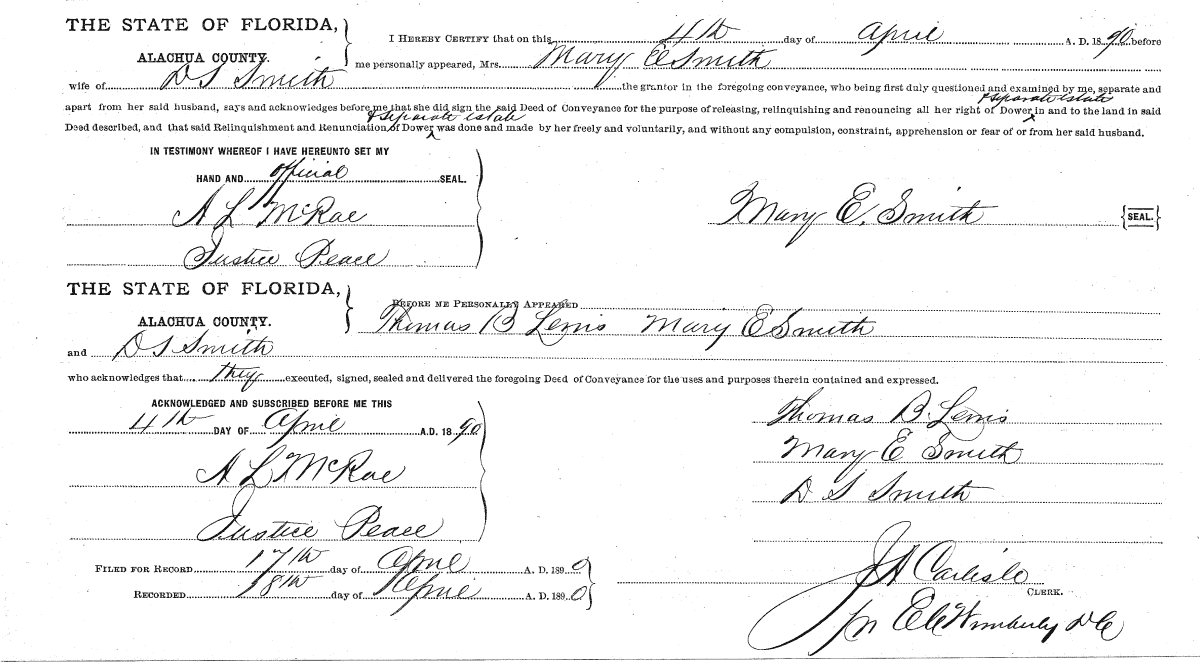 THE STATE OF FLORIDA,
ALACHUA COUNTY.
I HEREBY CERTIFY that on this 4th day of April A. D. 1890 before
me personally appeared, Mrs. Mary E Smith
wife of D S Smith the grantor in the foregoing conveyance, who being first duly questioned and examined by me, separate and
& separate estate
apart from her said husband, says and acknowledges before me that she did sign the said Deed of Conveyance for the purpose of releasing, relinquishing and renouncing all her right of Dower in and to the land in said
& separate estate
Deed described, and that said Relinquishment and Renunciation of Dower was done and made by her freely and voluntarily, and without any compulsion, constraint, apprehension or fear of or from her said husband.
IN TESTIMONY WHEREOF I HAVE HEREUNTO SET MY
HAND AND official SEAL.
A L McRae
Justice Peace
Mary E. Smith {SEAL.}
THE STATE OF FLORIDA,
ALACHUA COUNTY.
BEFORE ME PERSONALLY APPEARED
Thomas B Lewis Mary E Smith
and D S Smith
who acknowledges that they executed, signed, sealed and delivered the foregoing Deed of Conveyance for the uses and purposes therein contained and expressed.
ACKNOWLEDGED AND SUBSCRIBED BEFORE ME THIS
4th DAY OF April A.D. 1890
A L McRae
Justice Peace
Thomas B. Lewis
Mary E Smith
D S Smith
FILED FOR RECORD 17th day of April A. D. 1890
RECORDED 18th day of April A. D. 1890
J A Carlisle
CLERK.
pr E C Wimberly D C